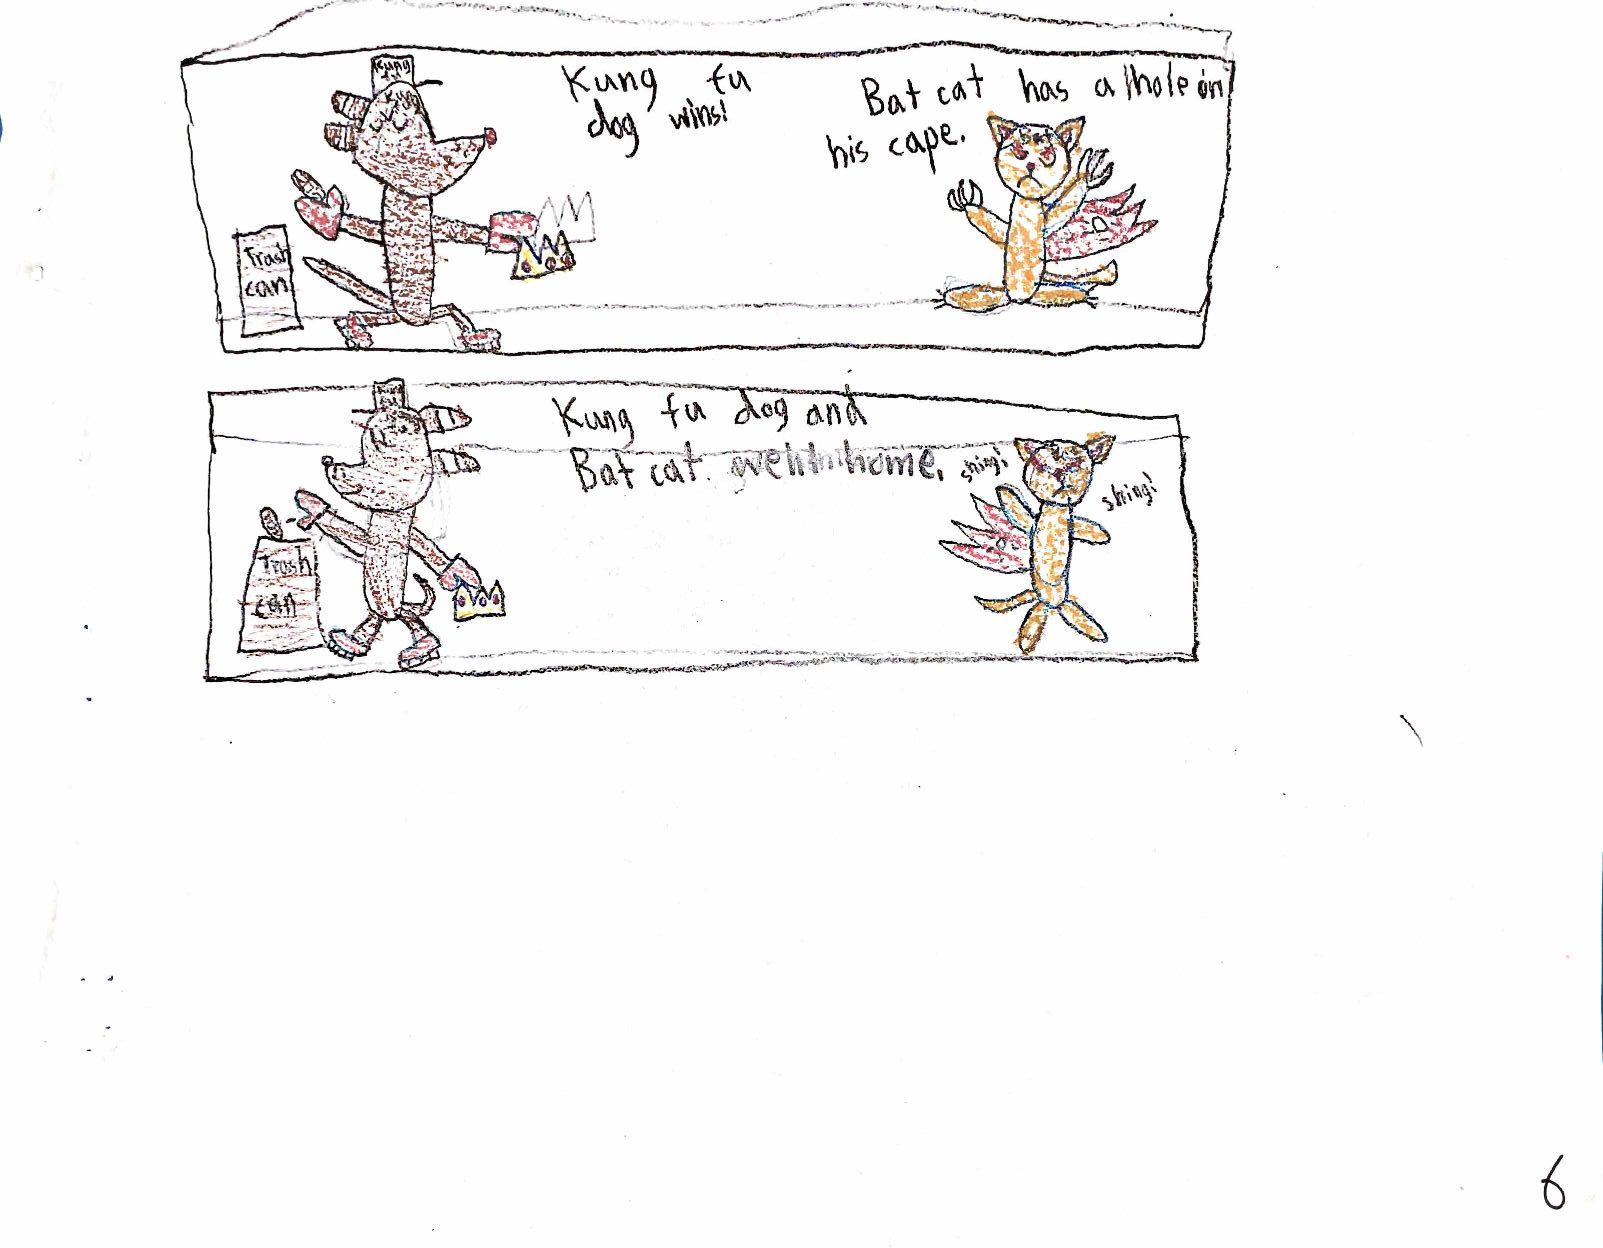 Kung
fu
Kung fu
dog wins!
Bat cat has a hole on
his cape.
Trash
can
Kung fu dog and
Bat cat went home.
shing!
shing!
Trash
can
6